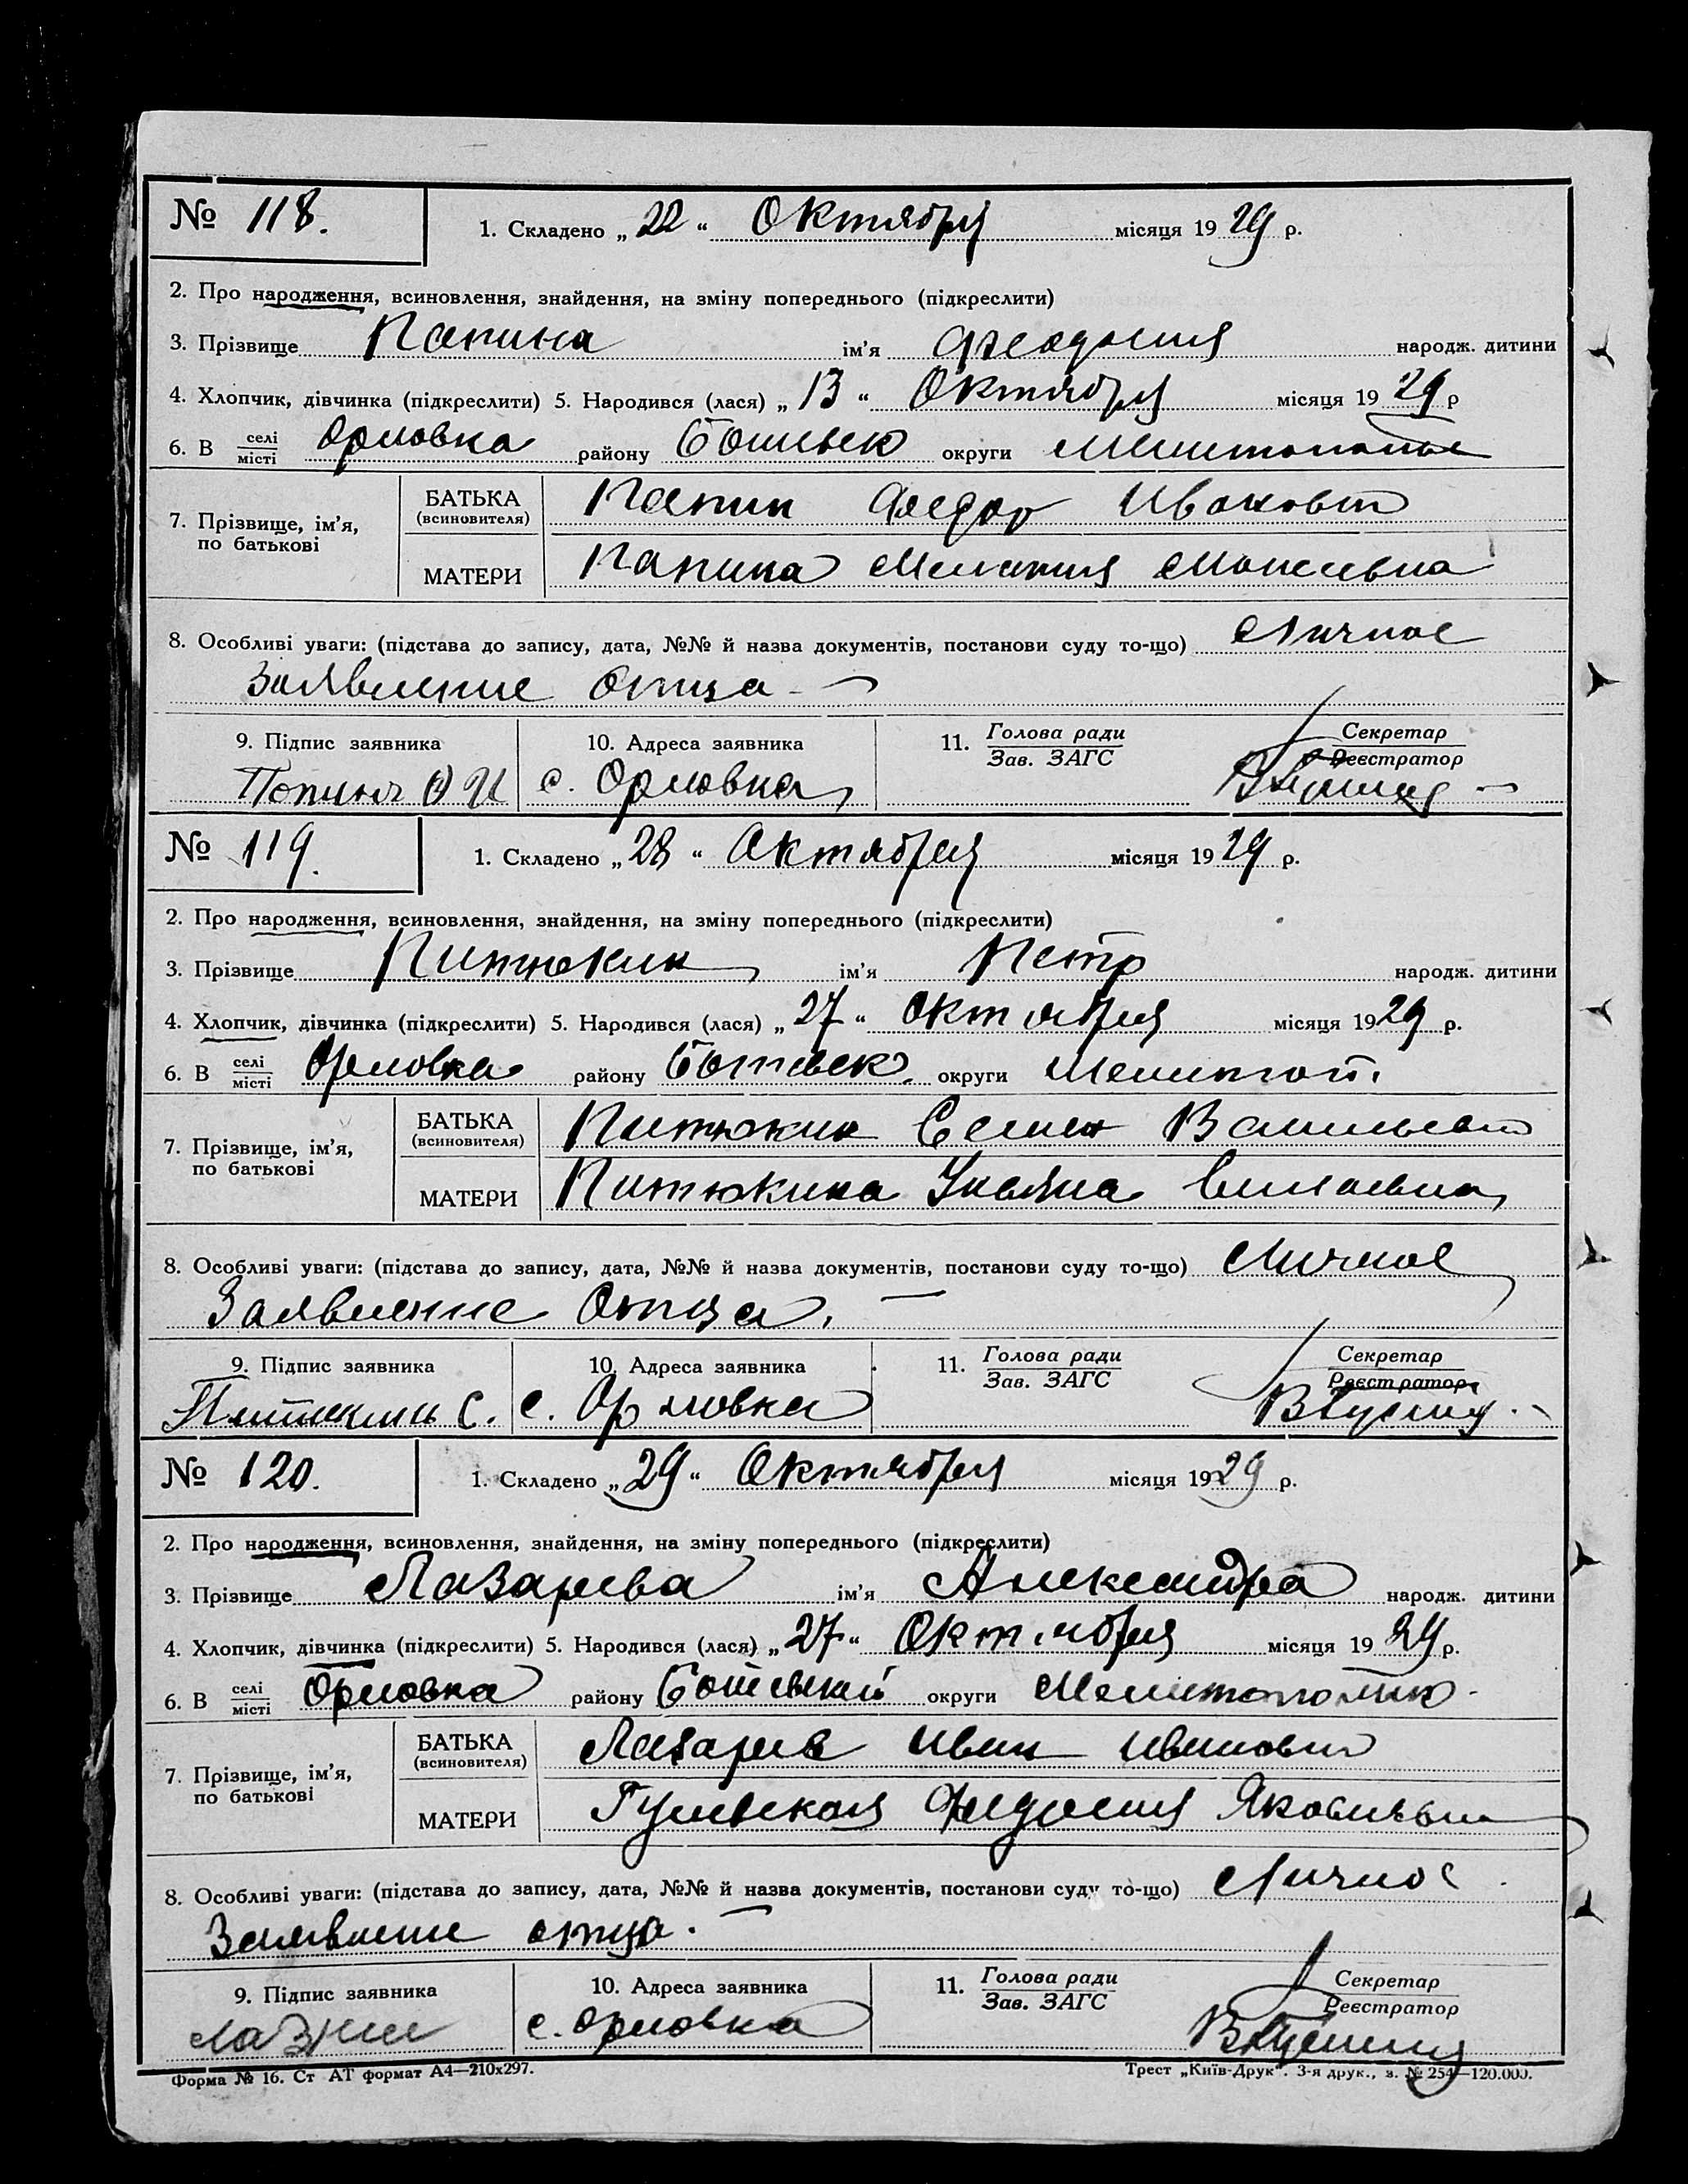 № 118. 1. Складено „ 22 “ Октября місяця 19 29 р.
2. Про народження, всиновлення, знайдення, на зміну попереднього (підкреслити)
3. Прізвище Папина ім’я Феодосия народж. дитини
4. Хлопчик, дівчинка (підкреслити) 5. Народився (лася) „ 13 “ Октября місяця 19 29 р
6. В селі місті Орловка району округи
7. Прізвище, ім’я, по батькові БАТЬКА (всиновителя) Папин Федор Иванович
МАТЕРИ Папина Мелания
8. Особливі уваги: (підстава до запису, дата, №№ й назва документів, постанови суду то-що) Личное
Заявление отца
9. Підпис заявника 10. Адреса заявника 11. Голова ради Зав. ЗАГС Секретар Реєстратор
с. Орловка
№ 119. 1. Складено „ 28 “ Октября місяця 19 29 р.
2. Про народження, всиновлення, знайдення, на зміну попереднього (підкреслити)
3. Прізвище Питюкин ім’я Петр народж. дитини
4. Хлопчик, дівчинка (підкреслити) 5. Народився (лася) „ 27 “ Октября місяця 19 29 р.
6. В селі місті Орловка району Ботевск. округи Мелитоп.
7. Прізвище, ім’я, по батькові БАТЬКА (всиновителя) Питюкин Семен
МАТЕРИ Питюкина Ульяна
8. Особливі уваги: (підстава до запису, дата, №№ й назва документів, постанови суду то-що) Личное
Заявление Отца.
9. Підпис заявника 10. Адреса заявника 11. Голова ради Зав. ЗАГС Секретар Реєстратор
с. Орловка
№ 120. 1. Складено „ 29 “ Октября місяця 19 29 р.
2. Про народження, всиновлення, знайдення, на зміну попереднього (підкреслити)
3. Прізвище Лазарева ім’я Александра народж. дитини
4. Хлопчик, дівчинка (підкреслити) 5. Народився (лася) „ 27 “ Октября місяця 19 29 р.
6. В селі місті Орловка району Ботевский округи
7. Прізвище, ім’я, по батькові БАТЬКА (всиновителя) Лазарев Иван Иванович
МАТЕРИ Федосия Яковлевна
8. Особливі уваги: (підстава до запису, дата, №№ й назва документів, постанови суду то-що) Личное
Заявление отца.
9. Підпис заявника 10. Адреса заявника 11. Голова ради Зав. ЗАГС Секретар Реєстратор
с. Орловка
Форма № 16. Ст АТ формат А4—210х297. Трест „Київ-Друк“. 3-я друк., з. № 254—120.000.